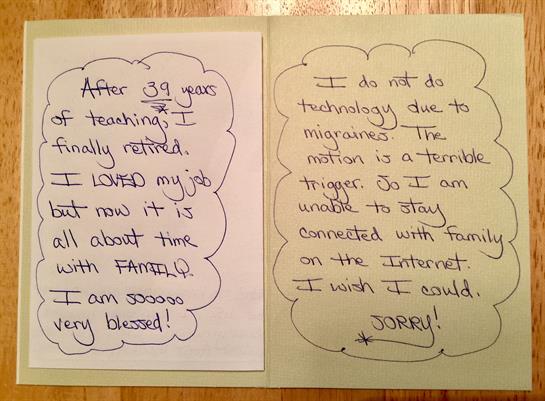 After 39 years
of teaching, I
finally retired.
I LOVED my job
but now it is
all about time
with FAMILY.
I am sooooo
very blessed!
I do not do
technology due to
migraines. The
motion is a terrible
trigger. So I am
unable to stay
connected with family
on the Internet.
I wish I could.
SORRY!